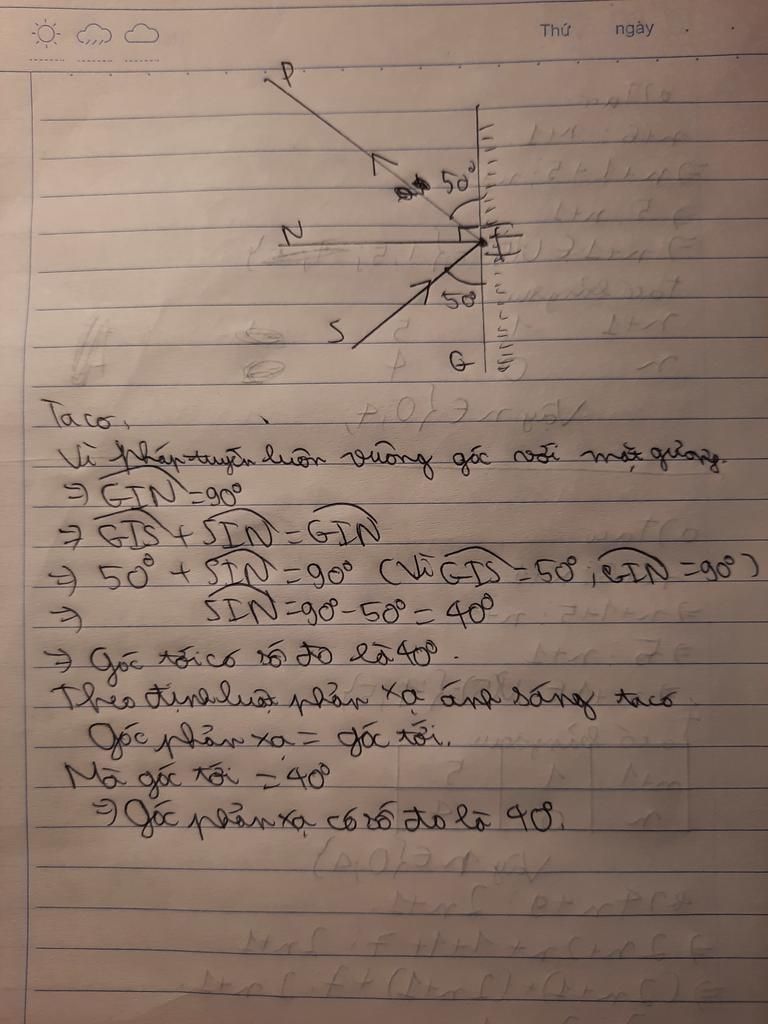 Thứ ngày
P
50°
N
I
50°
S
G
Ta có,
Vì pháp tuyến luôn vuông góc với mặt gương.
⇒ GIN = 90°
⇒ GIS + SIN = GIN
⇒ 50° + SIN = 90° (Vì GIS = 50°; GIN = 90°)
⇒ SIN = 90 - 50° = 40°
⇒ Góc tới có số đo là 40°.
Theo định luật phản xạ ánh sáng ta có
Góc phản xạ = góc tới.
Mà góc tới = 40°
⇒ Góc phản xạ có số đo là 40°.